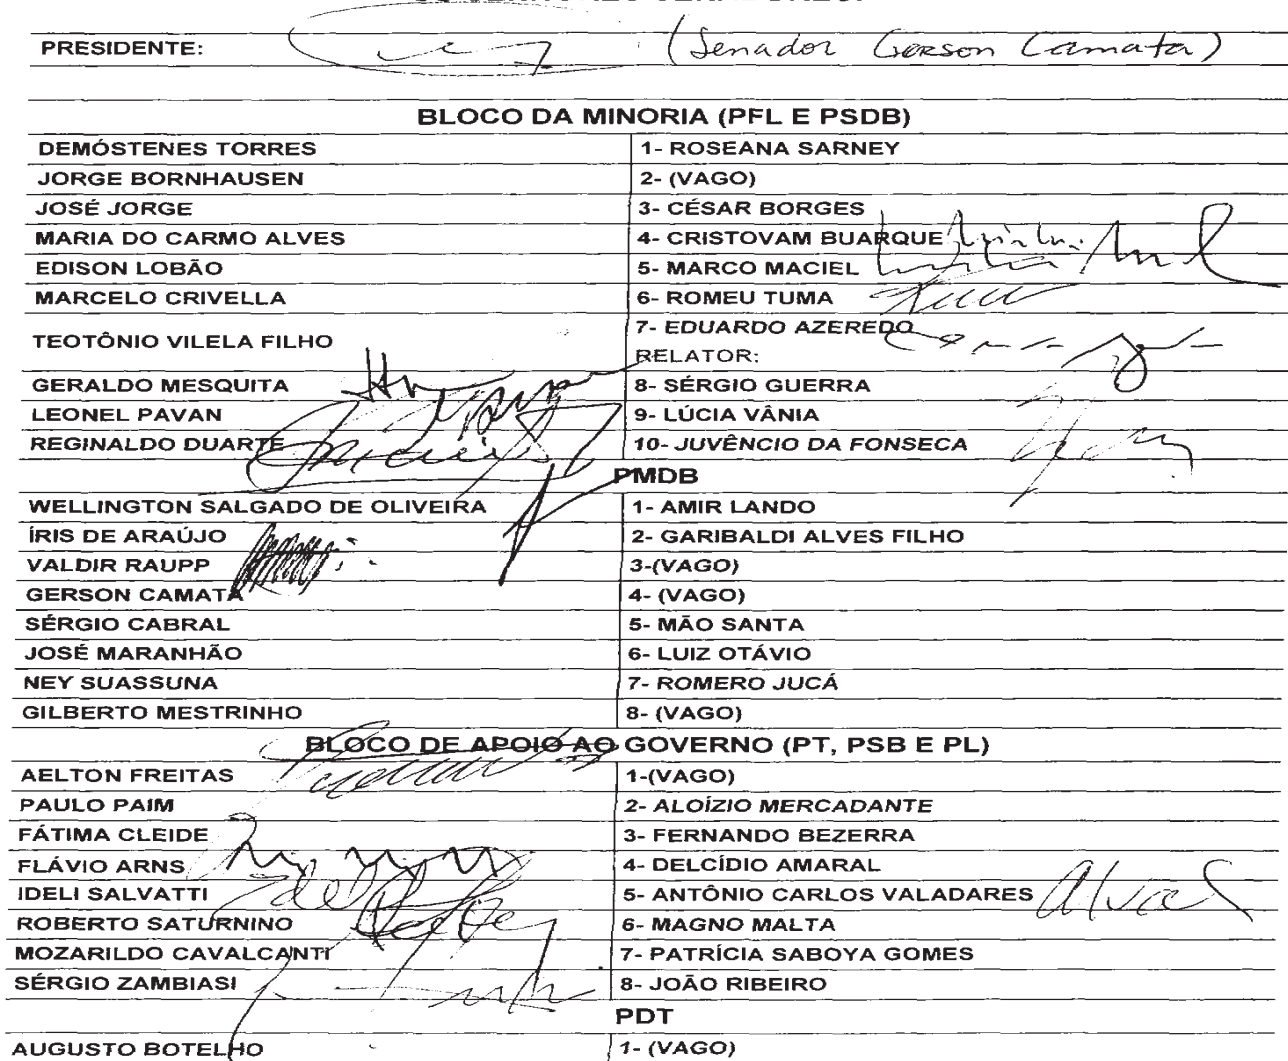 PRESIDENTE: (Senador Gerson Camata)
BLOCO DA MINORIA (PFL E PSDB)
DEMÓSTENES TORRES 1- ROSEANA SARNEY
JORGE BORNHAUSEN 2- (VAGO)
JOSÉ JORGE 3- CÉSAR BORGES
MARIA DO CARMO ALVES 4- CRISTOVAM BUARQUE
EDISON LOBÃO 5- MARCO MACIEL
MARCELO CRIVELLA 6- ROMEU TUMA
TEOTÔNIO VILELA FILHO 7- EDUARDO AZEREDO
RELATOR:
GERALDO MESQUITA 8- SÉRGIO GUERRA
LEONEL PAVAN 9- LÚCIA VÂNIA
REGINALDO DUARTE 10- JUVÊNCIO DA FONSECA
PMDB
WELLINGTON SALGADO DE OLIVEIRA 1- AMIR LANDO
ÍRIS DE ARAÚJO 2- GARIBALDI ALVES FILHO
VALDIR RAUPP 3-(VAGO)
GERSON CAMATA 4- (VAGO)
SÉRGIO CABRAL 5- MÃO SANTA
JOSÉ MARANHÃO 6- LUIZ OTÁVIO
NEY SUASSUNA 7- ROMERO JUCÁ
GILBERTO MESTRINHO 8- (VAGO)
BLOCO DE APOIO AO GOVERNO (PT, PSB E PL)
AELTON FREITAS 1-(VAGO)
PAULO PAIM 2- ALOÍZIO MERCADANTE
FÁTIMA CLEIDE 3- FERNANDO BEZERRA
FLÁVIO ARNS 4- DELCÍDIO AMARAL
IDELI SALVATTI 5- ANTÔNIO CARLOS VALADARES
ROBERTO SATURNINO 6- MAGNO MALTA
MOZARILDO CAVALCANTI 7- PATRÍCIA SABOYA GOMES
SÉRGIO ZAMBIASI 8- JOÃO RIBEIRO
PDT
AUGUSTO BOTELHO 1- (VAGO)